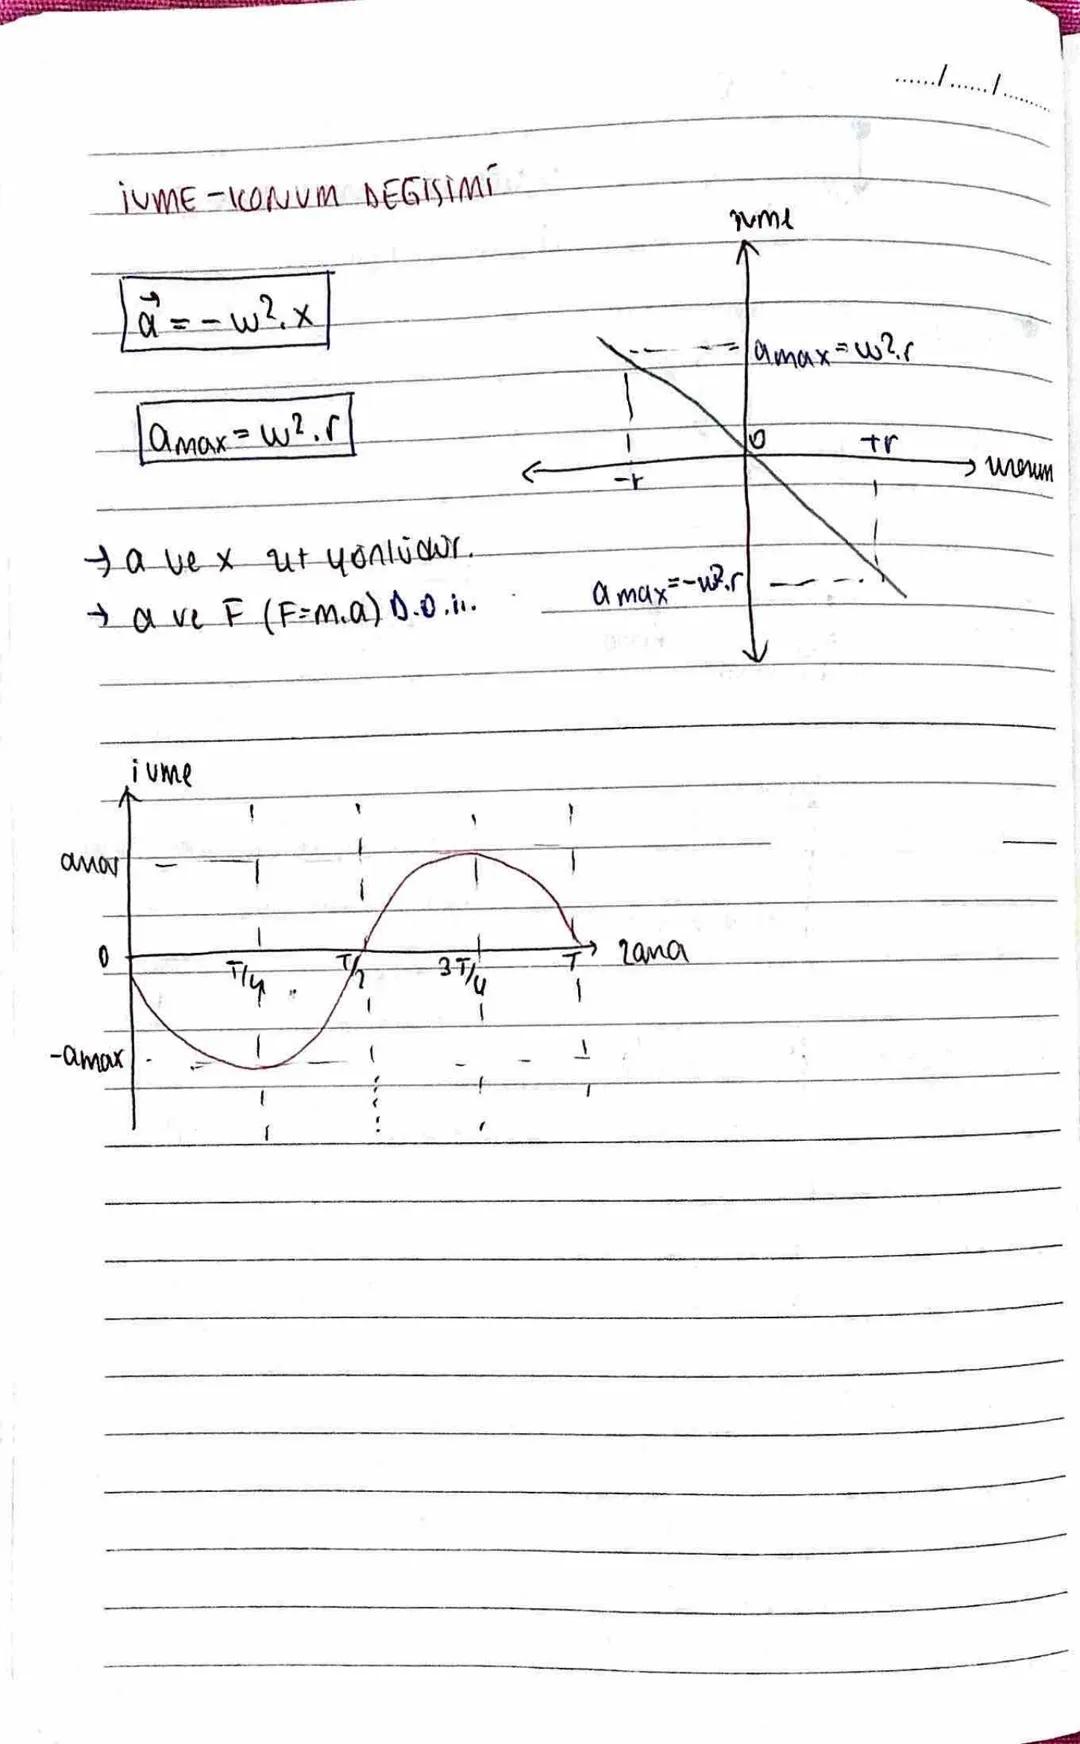 ....../....../.........
İVME-KONUM DEĞİŞİMİ
a⃗ = -w². x
amax = w². r
→ a ve x zıt yönlüdür.
→ a ve F (F=m.a) D.O.
ivme
amax = w².r
0
+r
-r
konum
amax = -w².r
ivme
amax
0
T/4
T/2
3T/4
T
-amax